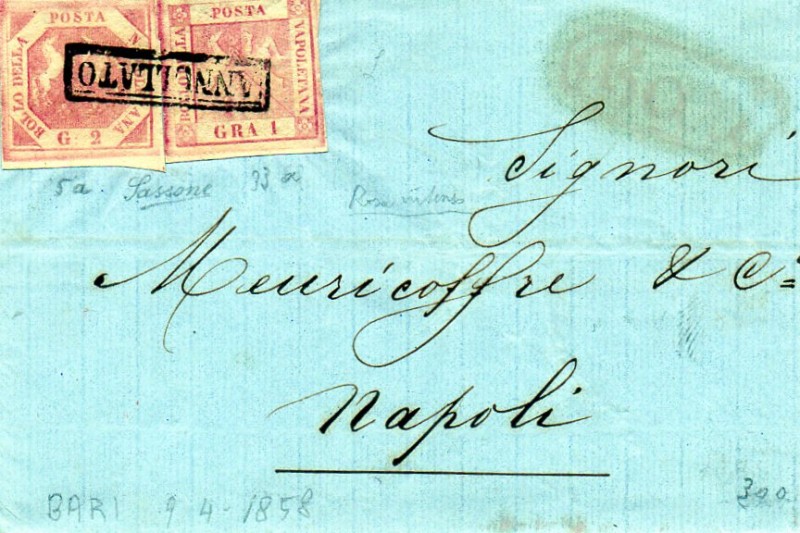 POSTA
BOLLO DELLA
G. 2
POSTA
NAPOLETANA
GRA 1
ANNULLATO
5a Sassone 33a
Rosa intenso
Signori
Meuricoffre & Cia
Napoli
BARI 9 4 - 1858
300